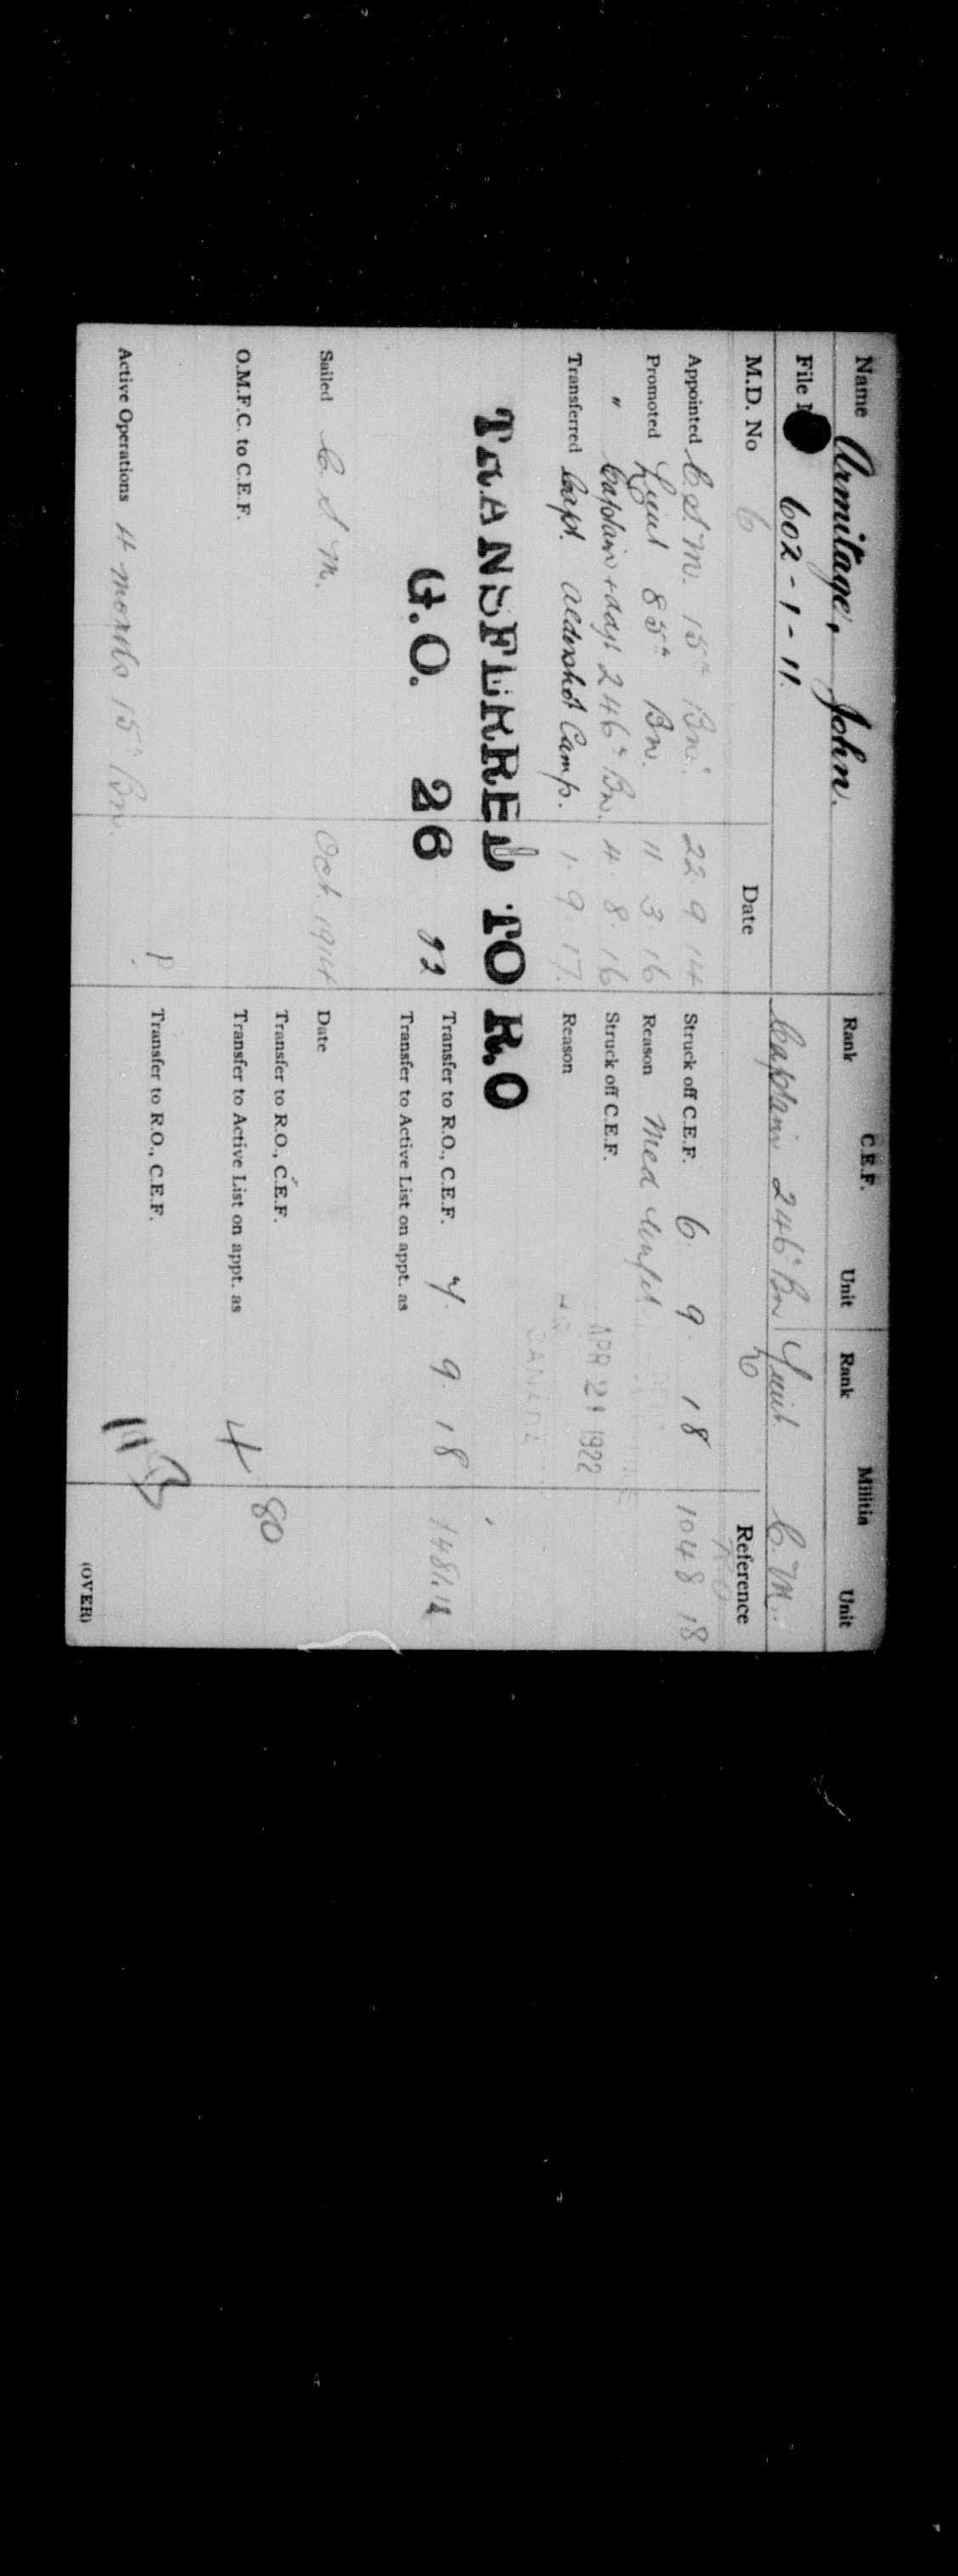 Name Armitage, John. Rank C.E.F. Unit Rank Militia Unit
File 602-1-11. Captain 246th Bn Lieut C.M.
M.D. No 6 Date 6 Reference
Appointed C.S.M. 15th Bn. 22.9.14 Struck off C.E.F. 6. 9. 18 1048 18
Promoted Lieut 85th Bn. 11 3 16 Reason Med Unfit
" Captain + Adjt 246th Bn. 4. 8. 16 Struck off C.E.F. APR 21 1922
Transferred Capt. Aldershot Camp. 1. 9. 17. Reason
CANADA
TRANSFERRED TO R.O
Transfer to R.O., C.E.F. 7. 9. 18
G.O. 26 22 Transfer to Active List on appt. as
Sailed C.S.M. Oct. 1914 Date
Transfer to R.O., C.E.F. 80
O.M.F.C. to C.E.F. Transfer to Active List on appt. as 4
P. Transfer to R.O., C.E.F.
Active Operations 4 months 15th Bn.
(OVER)